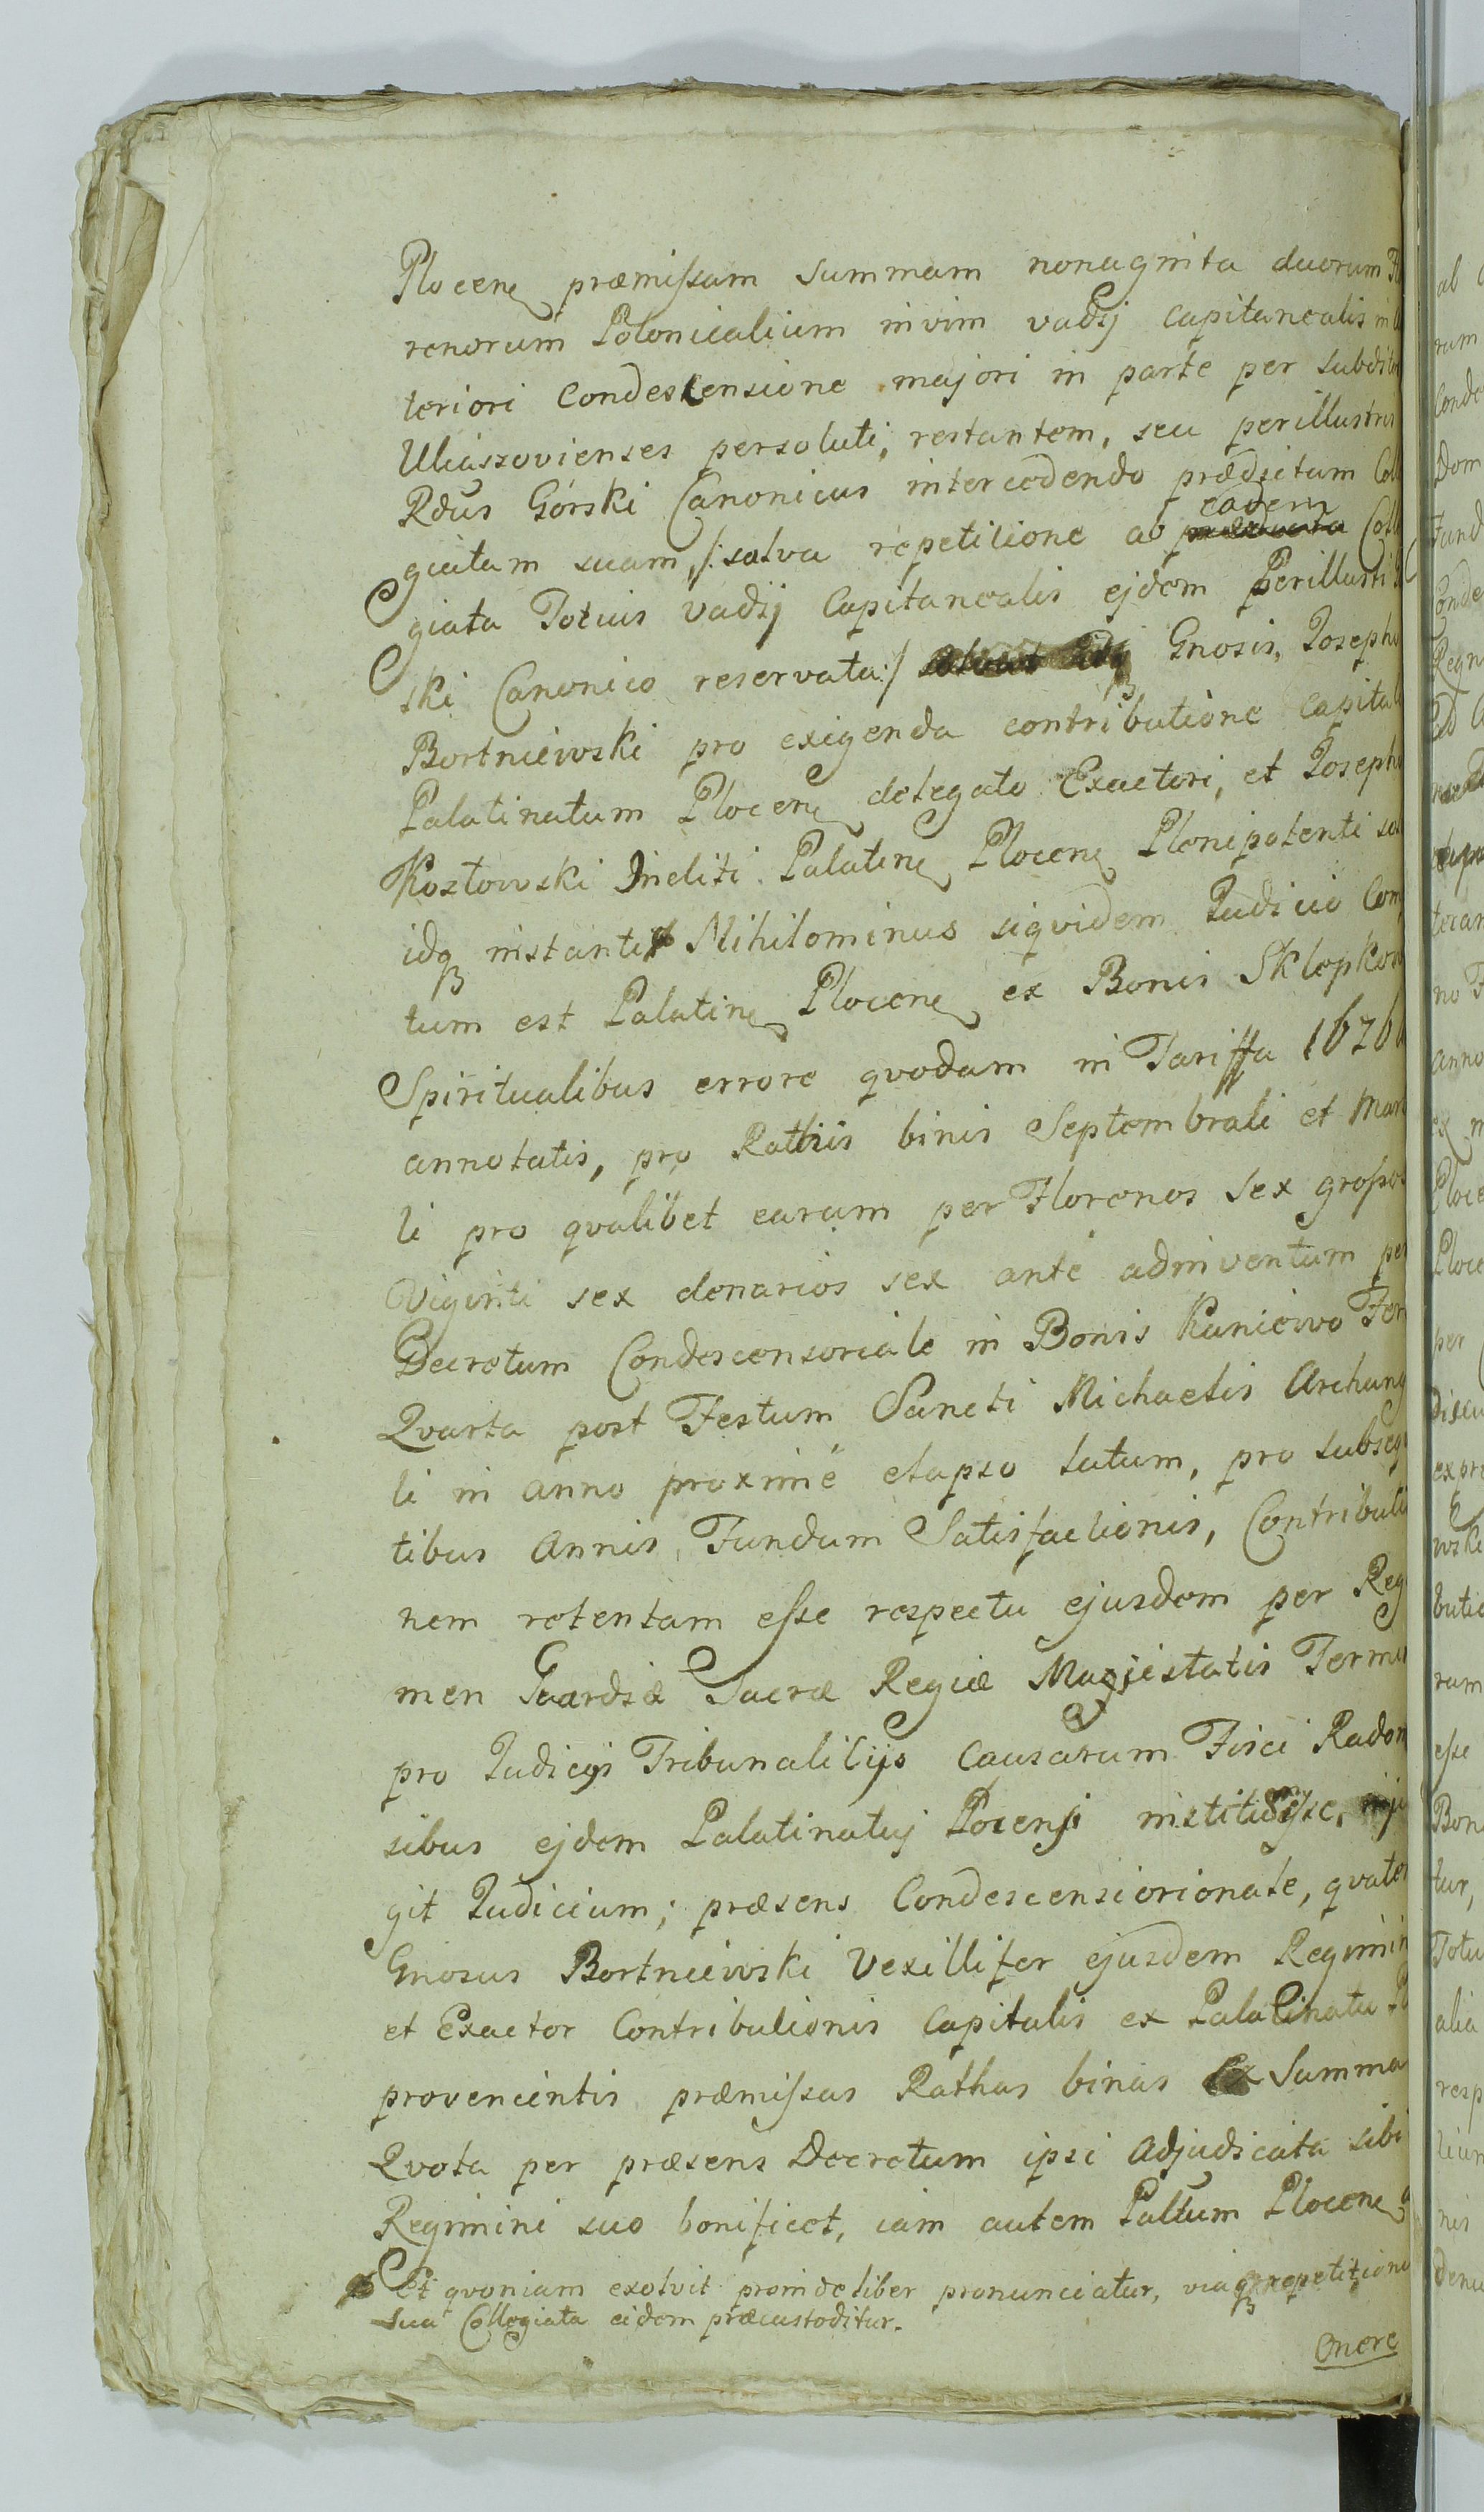 Plocen præmissam summam nonaginta duorum Fl
renorum Polonicalium in vim vadij Capitanealis in
teriori Condescensione majori in parte per subdito
Uliaszovienses persoluti, restantem, seu perillustris
Rdus Górski Canonicus intercedendo prædictum Coll
giatam suam, /: salva repetitione ab eadem Coll
giata Totius vadij Capitanealis ejdem Perillustri
ski Canonico reservata :/ Gnosis, Josepho
Bortniewski pro exigenda contributione Capitali
Palatinatum Plocen delegato Exactori, et Josepho
Kozłowski Incliti Palatin Plocen Plenipotenti sol
idq instanti Nihilominus siqvidem Judicio Com
tum est Palatin Plocen ex Bonis Sklepkow
Spiritualibus errore qvodam in Tariffa 1676
annotatis, pro Rathis binis Septembrali et Mar
li pro qvalibet earum per Florenos sex grossos
Viginti sex denarios sex ante adinventum per
Decretum Condescensoriale in Bonis Kuniewo Fer
Qvarta post Festum Sancti Michaelis Archang
li in anno proximè elapso latum, pro subseq
tibus Annis, Fundum Satisfactionis, Contributi
nem retentam esse respectu ejusdem per Reg
men Gvardiæ Sacræ Regiæ Majestatis Termin
pro Judicijs Tribunalitijs Causarum Fisci Radom
sibus ejdem Palatinatuj Plocensi instituisse, inju
git Judicium; præsens Condescensiorionale, qvate
Gnosus Bortniewski Vexillifer ejusdem Regimin
et Exactor Contributionis Capitalis ex Palatinatu Pl
provenientis præmissas Rathas binas Ex Summa
Qvota per præsens Decretum ipsi Adjudicata sibi
Regimini suo bonificet, iam autem Palttum Plocen
Et qvoniam exolvit proinde liber pronunciatur, viaq repetitionis
sua Collegiata eidem præcustoditur.
Onere